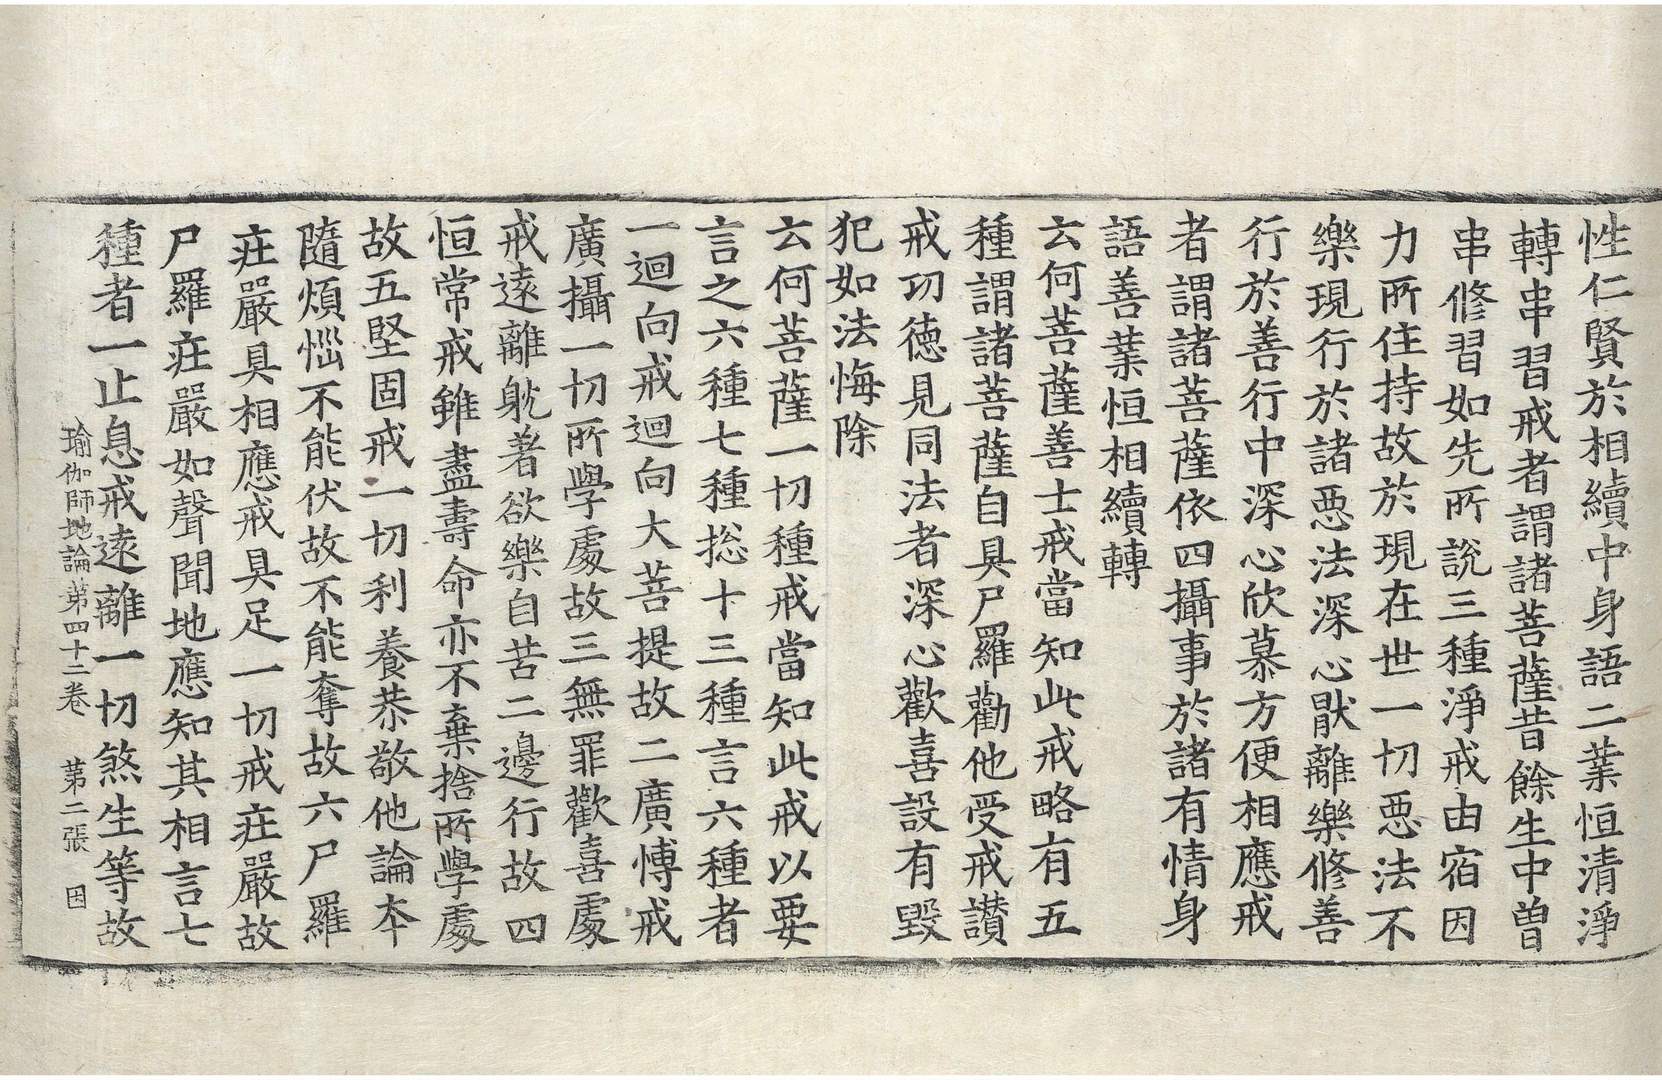 性仁賢於相續中身語二業恒清淨
轉串習戒者謂諸菩薩昔餘生中曾
串修習如先所說三種淨戒由宿因
力所住持故於現在世一切惡法不
樂現行於諸惡法深心厭離樂修善
行於善行中深心欣慕方便相應戒
者謂諸菩薩依四攝事於諸有情身
語善業恒相續轉
云何菩薩善士戒當知此戒略有五
種謂諸菩薩自具尸羅勸他受戒讃
戒功德見同法者深心歡喜設有毀
犯如法悔除
云何菩薩一切種戒當知此戒以要
言之六種七種捴十三種言六種者
一迴向戒迴向大菩提故二廣博戒
廣攝一切所學處故三無罪歡喜處
戒遠離躭著欲樂自苦二邊行故四
恒常戒雖盡壽命亦不棄捨所學處
故五堅固戒一切利養恭敬他論夲
隨煩惱不能伏故不能奪故六尸羅
莊嚴具相應戒具足一切戒莊嚴故
尸羅莊嚴如聲聞地應知其相言七
種者一止息戒遠離一切煞生等故
瑜伽師地論第四十二卷 第二張 因